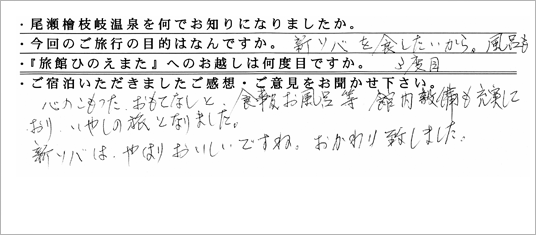 ・尾瀬檜枝岐温泉を何でお知りになりましたか。
・今回のご旅行の目的はなんですか。 新ソバを食したいから。風呂も
・『旅館ひのえまた』へのお越しは何度目ですか。 3度目
・ご宿泊いただきましたご感想・ご意見をお聞かせ下さい。
心のこもった、おもてなしと、食事、お風呂等 館内設備も充実して
おり、いやしの旅となりました。
新ソバは、やはりおいしいですね。おかわり致しました。